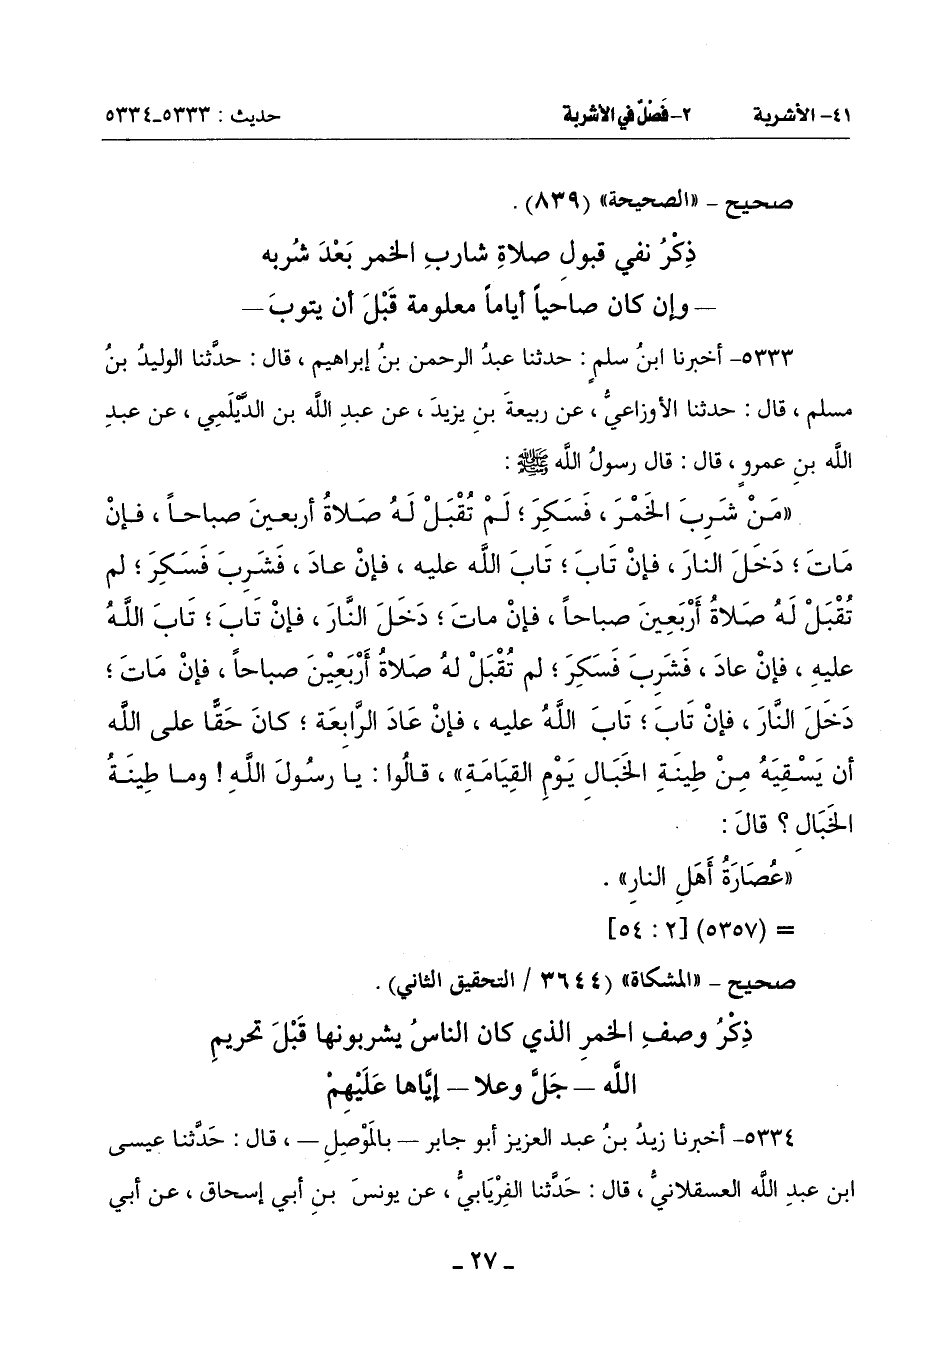 ٤١- الأشربة ٢- فَصْلٌ في الأشربة حديث : ٥٣٣٣-٥٣٣٤
صحيح - «الصحيحة» (٨٣٩) .
ذِكْرُ نفي قبولِ صلاةِ شاربِ الخمر بَعْدَ شُربه
— وإن كان صاحياً أياماً معلومة قَبْلَ أن يتوبَ —
٥٣٣٣- أخبرنا ابنُ سلمٍ : حدثنا عبدُ الرحمن بنُ إبراهيم ، قال : حدَّثنا الوليدُ بنُ
مسلم ، قال : حدثنا الأوزاعيُّ ، عن ربيعةَ بنِ يزيدَ ، عن عبدِ اللَّه بن الدَّيْلَمِي ، عن عبدِ
اللَّه بنِ عمروٍ ، قال : قال رسولُ اللَّه ﷺ :
«مَـنْ شَرِبَ الخَمْـرَ ، فَسَكِرَ ؛ لَـمْ تُقْبَـلْ لَـهُ صَـلاةُ أربعـينَ صباحـاً ، فـإنْ
مَاتَ ؛ دَخَلَ النارَ ، فإنْ تَابَ ؛ تَابَ اللَّه عليه ، فإنْ عادَ ، فَشَرِبَ فَسَكِرَ ؛ لم
تُقْبَلْ لَـهُ صَـلاةُ أَرْبَعِينَ صباحاً ، فإنْ ماتَ ؛ دَخَلَ النَّارَ ، فإنْ تَابَ ؛ تَابَ اللَّـهُ
عليهِ ، فإنْ عادَ ، فَشَرِبَ فَسَكِرَ ؛ لم تُقْبَلْ لهُ صَلاةُ أَرْبَعِيْنَ صباحاً ، فإنْ مَاتَ ؛
دَخَلَ النَّارَ ، فإنْ تَابَ ؛ تَابَ اللَّهُ عليه ، فإنْ عَادَ الرَّابِعَة ؛ كانَ حَقًّا على اللَّه
أن يَسْـقِيَهُ مِـنْ طِينَـةِ الخَبَـالِ يَـوْمِ القِيَامَـةِ» ، قـالُوا : يـا رسُـولَ اللَّـهِ ! ومـا طِينَـةُ
الخَبَالِ ؟ قالَ :
«عُصَارَةُ أَهَلِ النارِ» .
= (٥٣٥٧) [٢ : ٥٤]
صحيح - «المشكاة» (٣٦٤٤ / التحقيق الثاني) .
ذِكْرُ وصفِ الخمرِ الذي كان الناسُ يشربونها قَبْلَ تحريمِ
اللَّه — جَلَّ وعلا — إيَّاها عَلَيْهِمْ
٥٣٣٤- أخبرنا زيدُ بنُ عبد العزيز أبو جابر — بالمَوْصِلِ — ، قال : حَدَّثنا عيسى
ابن عبدِ اللَّه العسقلانيُّ ، قال : حَدَّثنا الفِرْيَابيُّ ، عن يونسَ بنِ أبي إسحاق ، عن أبي
ـ ٢٧ ـ